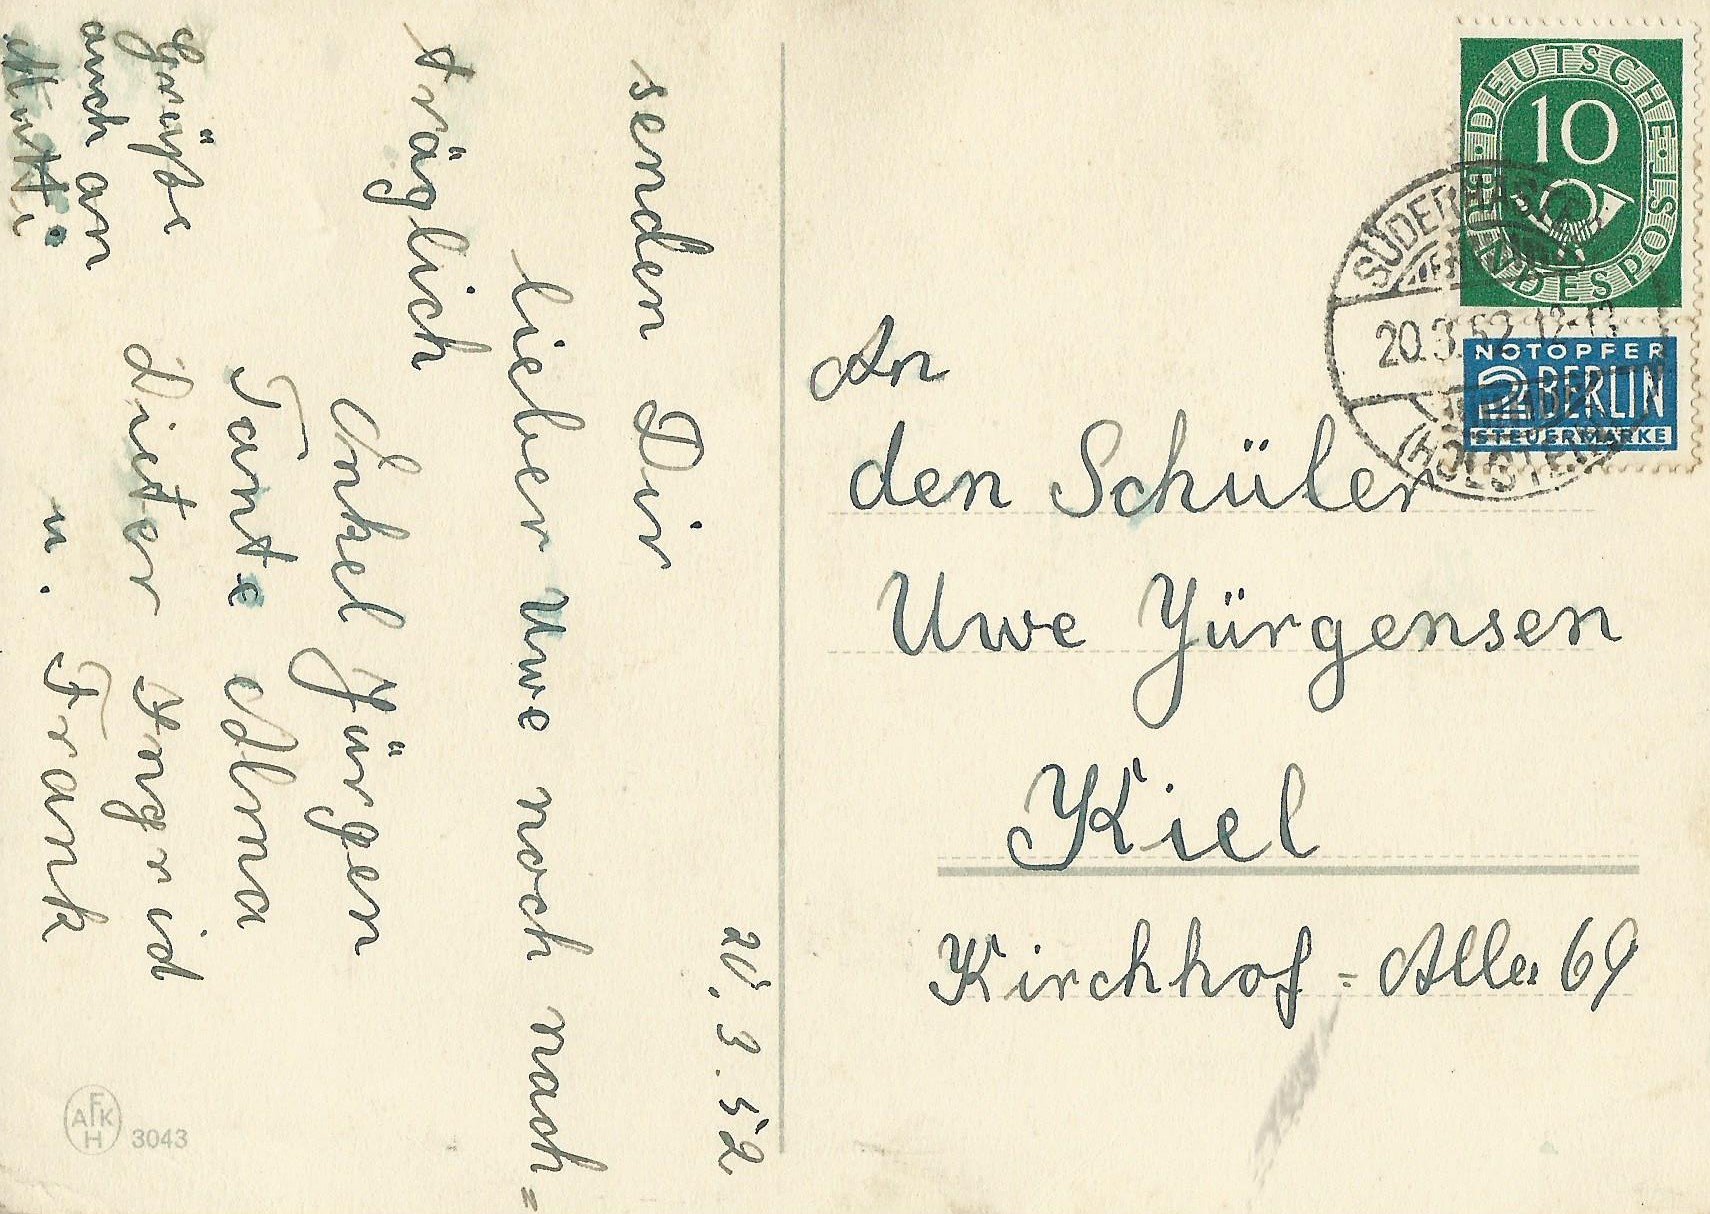 20.3.52
senden Dir
lieber Uwe noch nach=
träglich
Onkel Jürgen
Tante Alma
Dieter Ingrid
u. Frank
Grüße
auch an
Mutti
An
den Schüler
Uwe Jürgensen
Kiel
Kirchhof=Allee 69
DEUTSCHE POST
BUNDESPOST
10
NOTOPFER
2 BERLIN
STEUERMARKE
SÜDERHASTEDT
20.3.52.12-13
(HOLSTEIN)
AFKH 3043